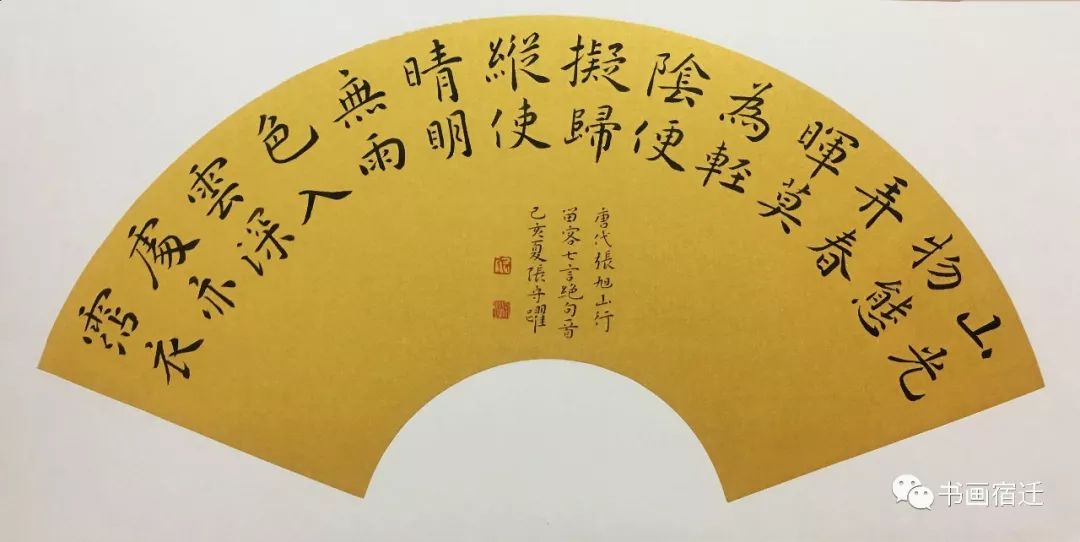 山光
物態
弄春
暉莫
為輕
陰便
擬歸
縱使
晴明
無雨
色入
雲深
處亦
霑衣
唐代張旭山行
留客七言绝句一首
己亥夏張守躍
书画宿迁